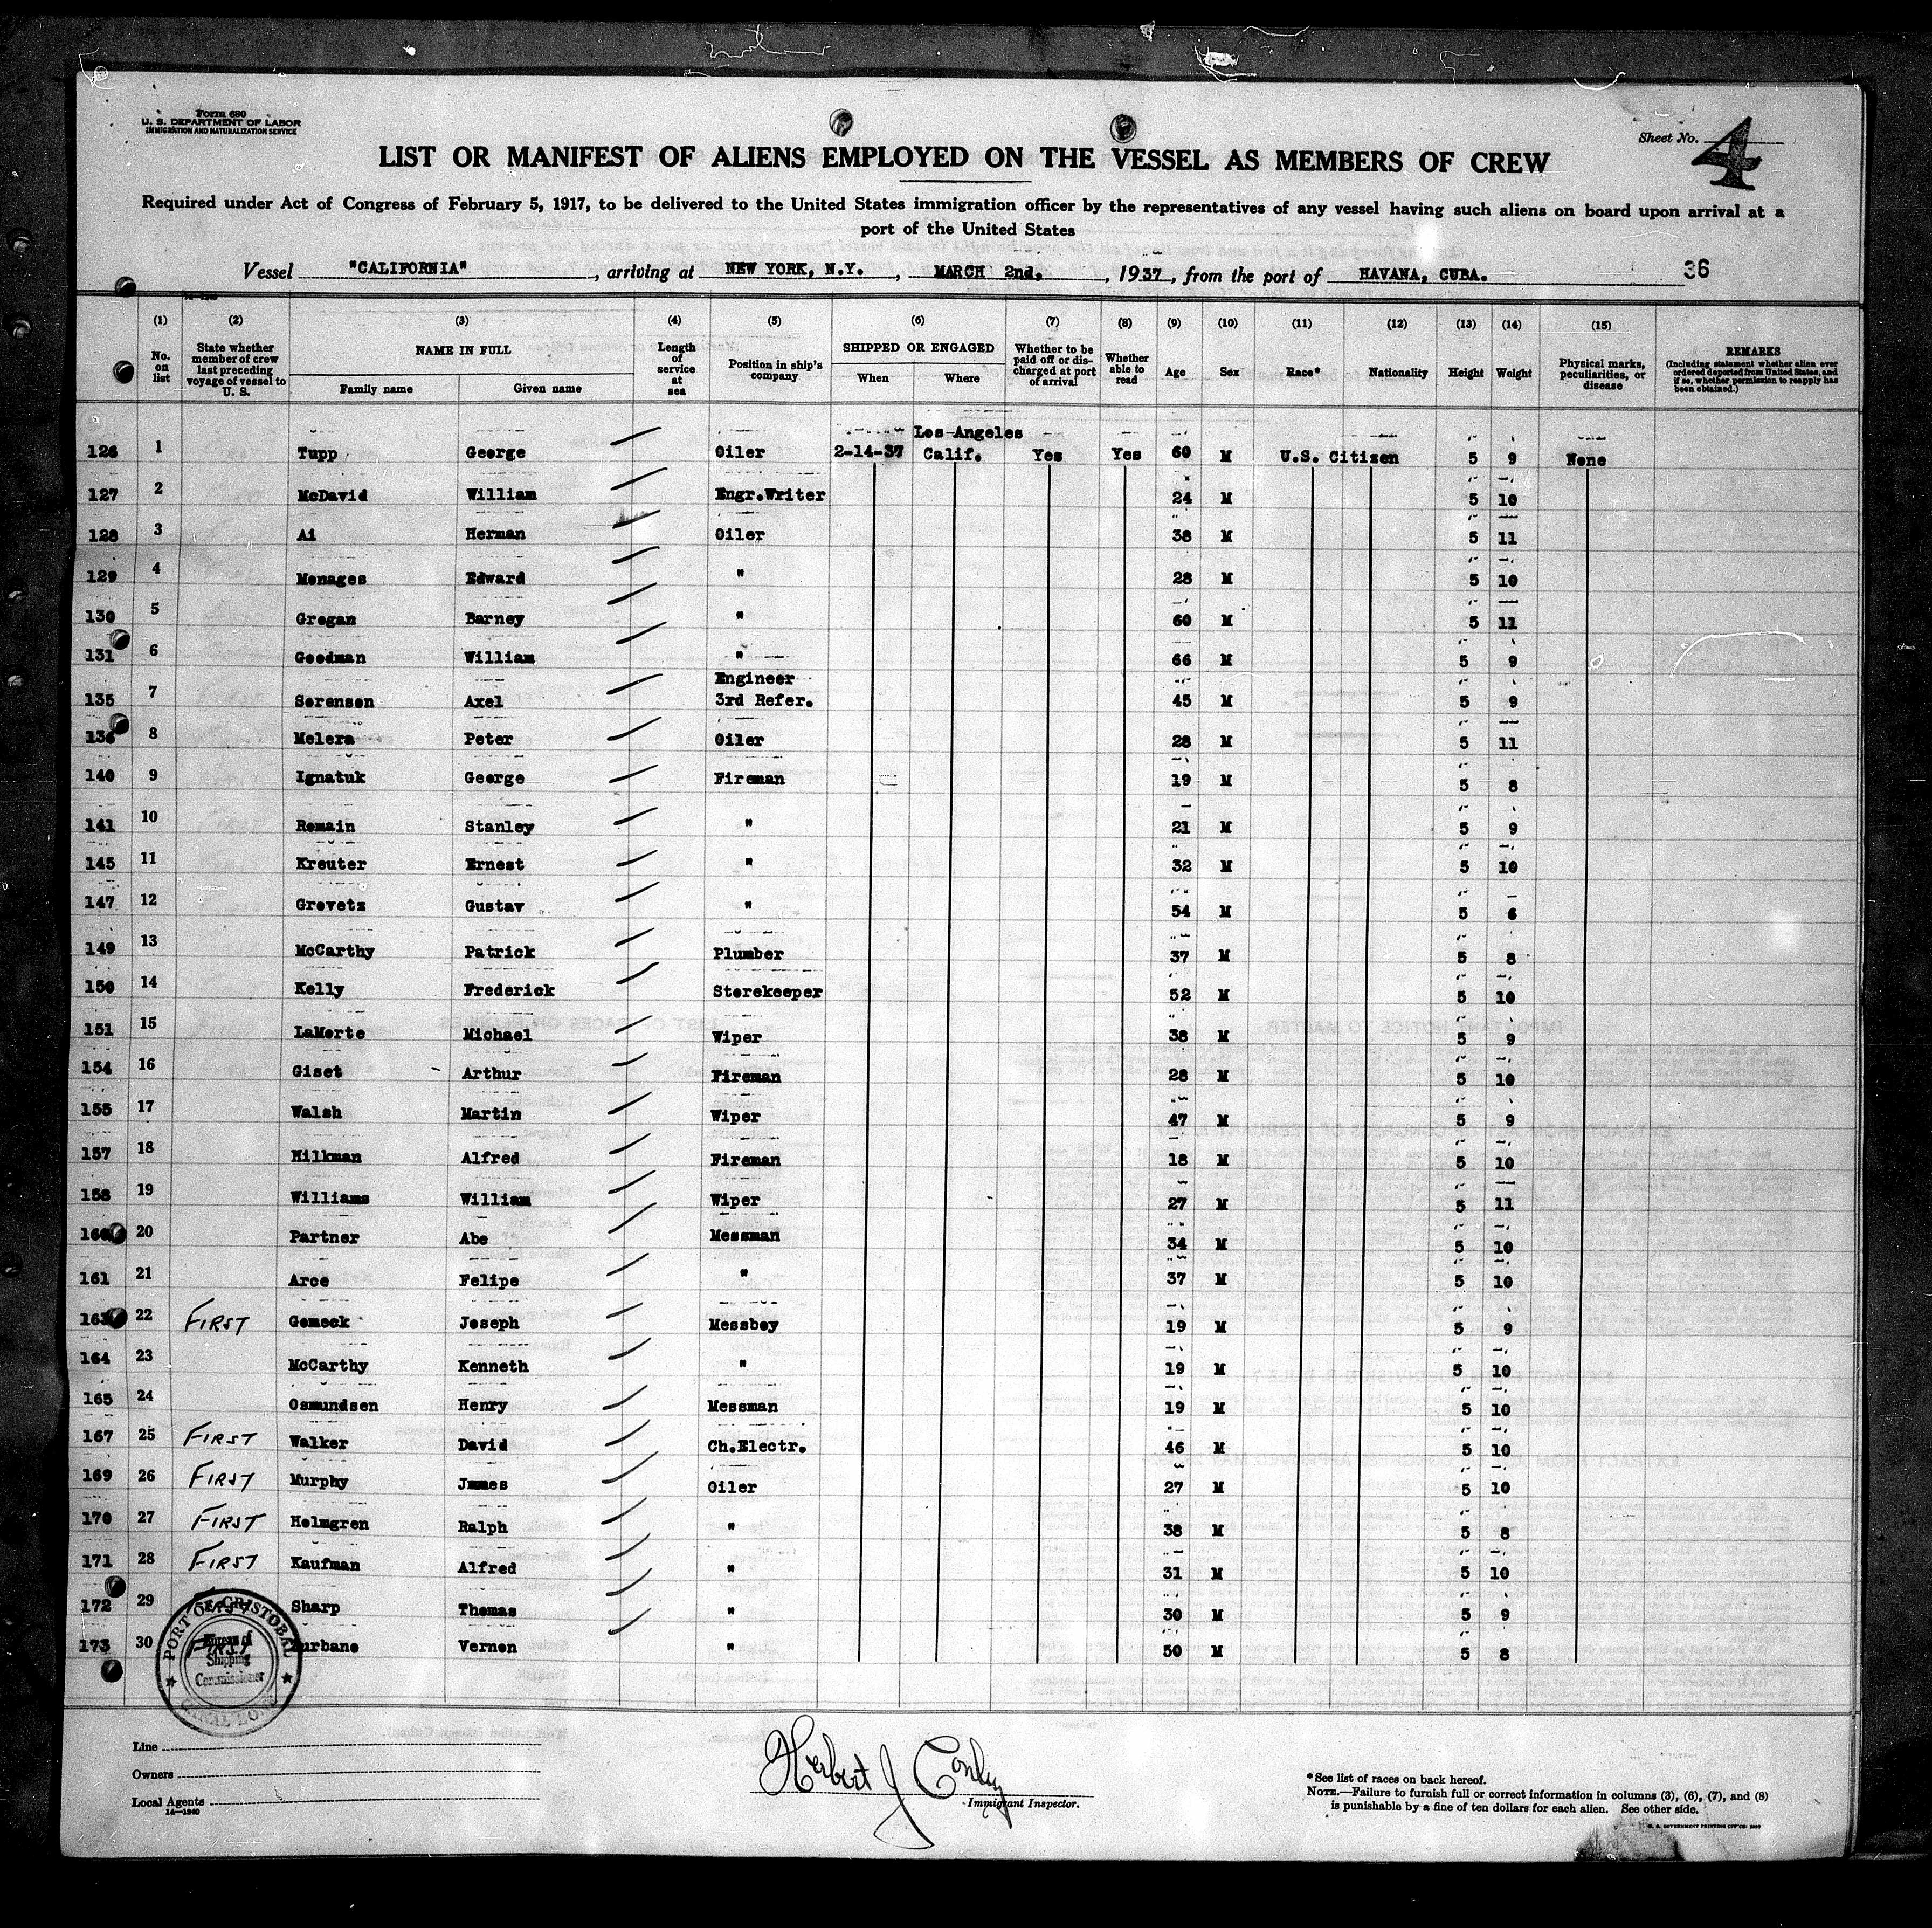 Form 680
U. S. DEPARTMENT OF LABOR
IMMIGRATION AND NATURALIZATION SERVICE
Sheet No. 4
LIST OR MANIFEST OF ALIENS EMPLOYED ON THE VESSEL AS MEMBERS OF CREW
Required under Act of Congress of February 5, 1917, to be delivered to the United States immigration officer by the representatives of any vessel having such aliens on board upon arrival at a
port of the United States
Vessel "CALIFORNIA", arriving at NEW YORK, N.Y., MARCH 2nd, 1937, from the port of HAVANA, CUBA. 36
(1) (2) (3) (4) (5) (6) (7) (8) (9) (10) (11) (12) (13) (14) (15)
No. on list
State whether member of crew last preceding voyage of vessel to U. S.
NAME IN FULL
Family name Given name
Length of service at sea
Position in ship's company
SHIPPED OR ENGAGED
When Where
Whether to be paid off or discharged at port of arrival
Whether able to read
Age Sex Race* Nationality Height Weight
Physical marks, peculiarities, or disease
REMARKS
(Including statement whether alien ever ordered deported from United States, and if so, whether permission to reapply has been obtained.)
Los Angeles
126 1 Tupp George Oiler 2-14-37 Calif. Yes Yes 60 M U.S. Citizen 5 9 None
127 2 McDavid William Engr.Writer 24 M 5 10
128 3 Ai Herman Oiler 38 M 5 11
129 4 Menages Edward " 28 M 5 10
130 5 Grogan Barney " 60 M 5 11
131 6 Goodman William " 66 M 5 9
Engineer
135 7 Sorensen Axel 3rd Refer. 45 M 5 9
136 8 Melera Peter Oiler 28 M 5 11
140 9 Ignatuk George Fireman 19 M 5 8
141 10 Romain Stanley " 21 M 5 9
145 11 Kreuter Ernest " 32 M 5 10
147 12 Grovetz Gustav " 54 M 5 6
149 13 McCarthy Patrick Plumber 37 M 5 8
150 14 Kelly Frederick Storekeeper 52 M 5 10
151 15 LaMorte Michael Wiper 38 M 5 9
154 16 Giset Arthur Fireman 28 M 5 10
155 17 Walsh Martin Wiper 47 M 5 9
157 18 Hilkman Alfred Fireman 18 M 5 10
158 19 Williams William Wiper 27 M 5 11
160 20 Partner Abe Messman 34 M 5 10
161 21 Arce Felipe " 37 M 5 10
163 22 FIRST Gomeck Joseph Messboy 19 M 5 9
164 23 McCarthy Kenneth " 19 M 5 10
165 24 Osmundsen Henry Messman 19 M 5 10
167 25 FIRST Walker David Ch.Electr. 46 M 5 10
169 26 FIRST Murphy James Oiler 27 M 5 10
170 27 FIRST Holmgren Ralph " 38 M 5 8
171 28 FIRST Kaufman Alfred " 31 M 5 10
172 29 FIRST Sharp Thomas " 30 M 5 9
173 30 FIRST Vernon " 50 M 5 8
PORT OF CRISTOBAL
Bureau of
Shipping
Commissioner
CANAL ZONE
Line
Owners
Local Agents
14—1940
Herbert J Conley
Immigrant Inspector.
*See list of races on back hereof.
NOTE.—Failure to furnish full or correct information in columns (3), (6), (7), and (8)
is punishable by a fine of ten dollars for each alien. See other side.